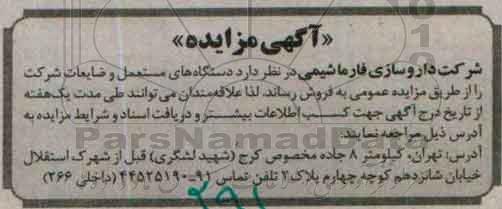 «آگهی مزایده»
شرکت داروسازی فارماشیمی در نظر دارد دستگاه‌های مستعمل و ضایعات شرکت
را از طریق مزایده عمومی به فروش رساند. لذا علاقه‌مندان می‌توانند طی مدت یک‌هفته
از تاریخ درج آگهی جهت کسب اطلاعات بیشتر و دریافت اسناد و شرایط مزایده به
آدرس ذیل مراجعه نمایند.
آدرس: تهران، کیلومتر ۸ جاده مخصوص کرج (شهید لشگری) قبل از شهرک استقلال
خیابان شانزدهم کوچه چهارم پلاک ۲ تلفن تماس ۹۱-۴۴۵۲۵۱۹۰ (داخلی ۲۶۶)
ParsNamadData